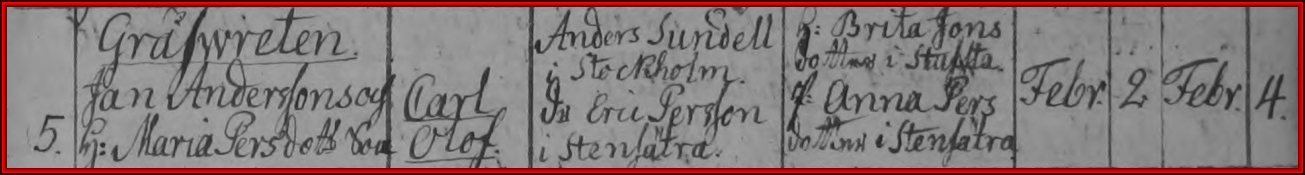 Gräswreten.
Jan Anderssons och
5. H: Maria Persdott:
Carl
Olof.
Anders Sundell
i Stockholm.
Eric Persson
i Stensätra.
H: Brita Jons
i
P: Anna Pers
i Stensätra
Febr. 2 Febr. 4.